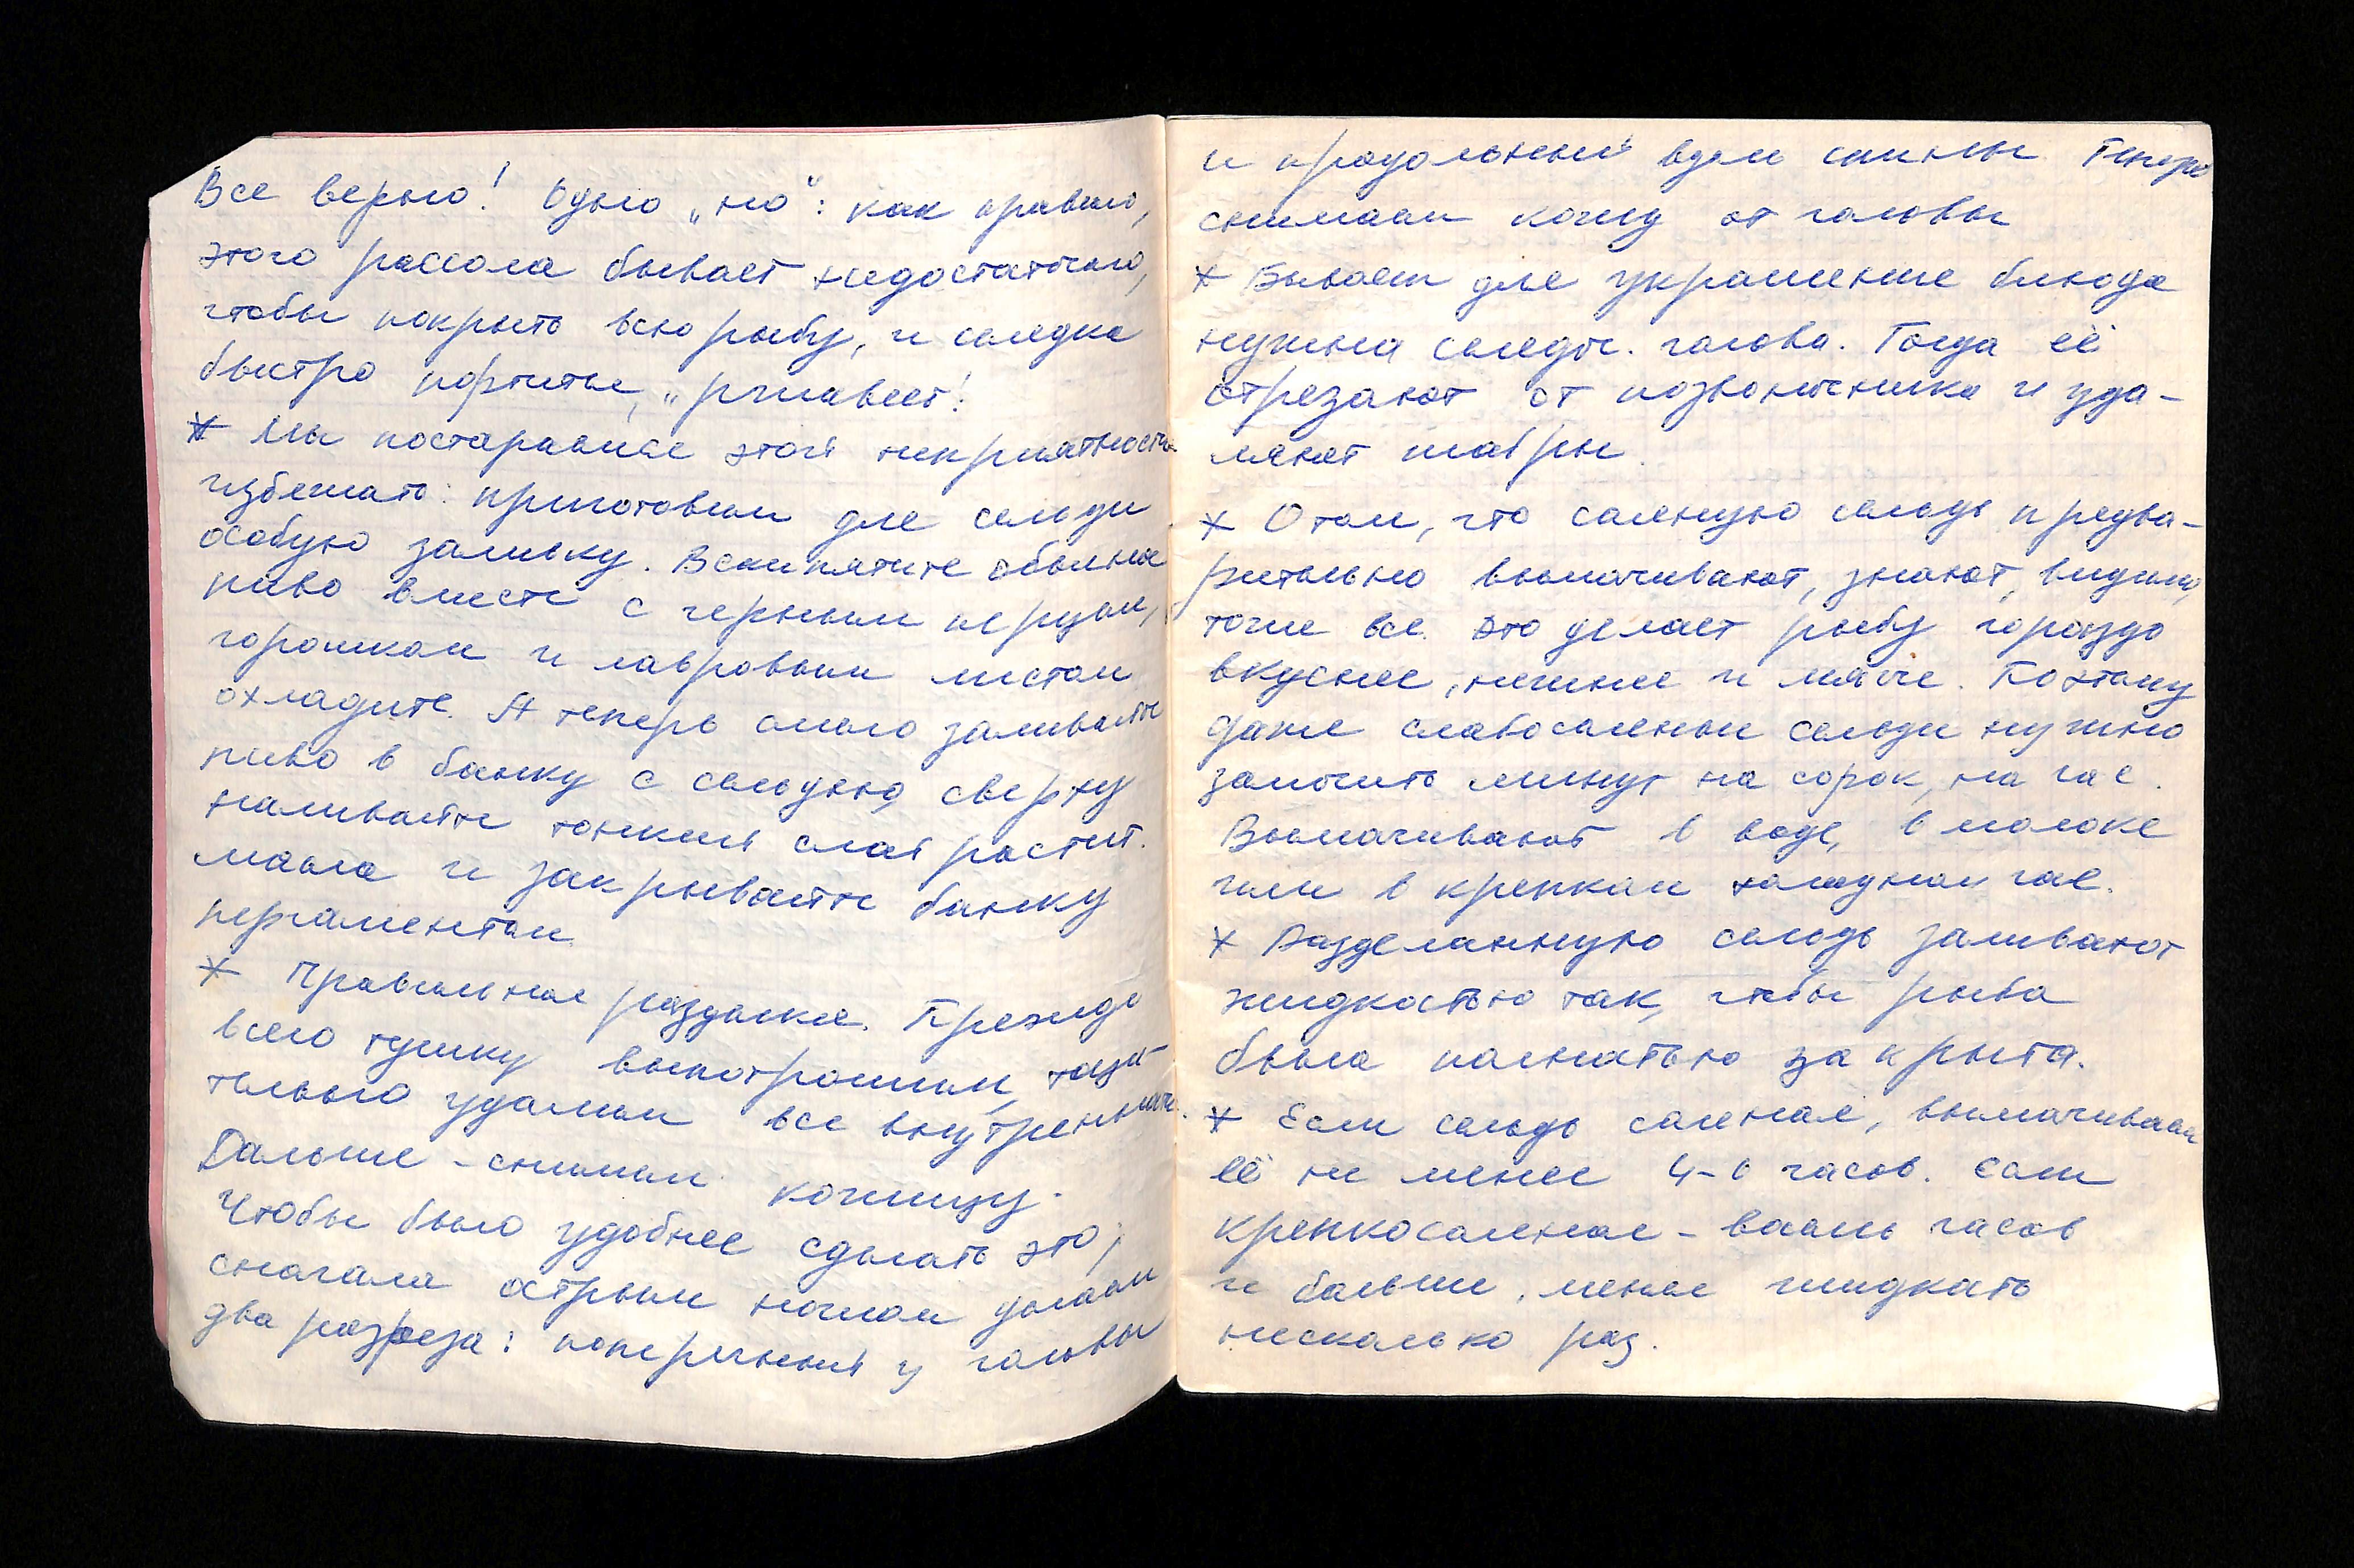 Все верно! Одно „но“: как правило,
этого рассола бывает недостаточно,
чтобы покрыть всю рыбу, и селедка
быстро портится, „ржавеет!
* Мы постараемся этой неприятности
избежать: приготовим для сельди
особую заливку. Вскипятите обычное
пиво вместе с черным перцем,
горошком и лавровым листом
охладите. А теперь смело заливайте
пиво в банку с сельдью, сверху
наливайте тонкий слой растит.
масла и закрывайте банку
пергаментом
* Правильная разделка. Прежде
всего тушку выпотрошим, тща-
тельно удалим все внутренности.
Дальше - снимем кожицу.
Чтобы было удобнее сделать это,
сначала острым ножом делаем
два разреза: поперечный у головы
и продольный вдоль спины. Теперь
снимаем кожу от головы
* Бывает для украшения блюда
нужна селедоч. голова. Тогда её
отрезают от позвоночника и уда-
ляют жабры
* О том, что соленую сельдь предва-
рительно вымачивают, знают, видимо,
тоже все. Это делает рыбу гораздо
вкуснее, нежнее и мягче. Поэтому
даже слабосоленые сельди нужно
замочить минут на сорок, на час.
Вымачивают в воде, в молоке
или в крепком холодном чае.
* Разделанную сельдь заливают
жидкостью так, чтобы рыба
была полностью закрыта.
* Если сельдь соленая, вымачиваем
её не менее 4-6 часов. Если
крепкосоленая - восемь часов
и больше, меняя жидкость
несколько раз.